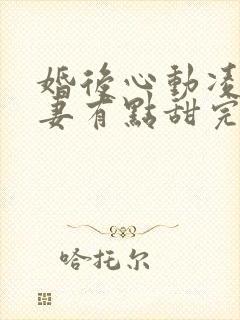 婚後心動凌
妻有點甜完
哈托尔